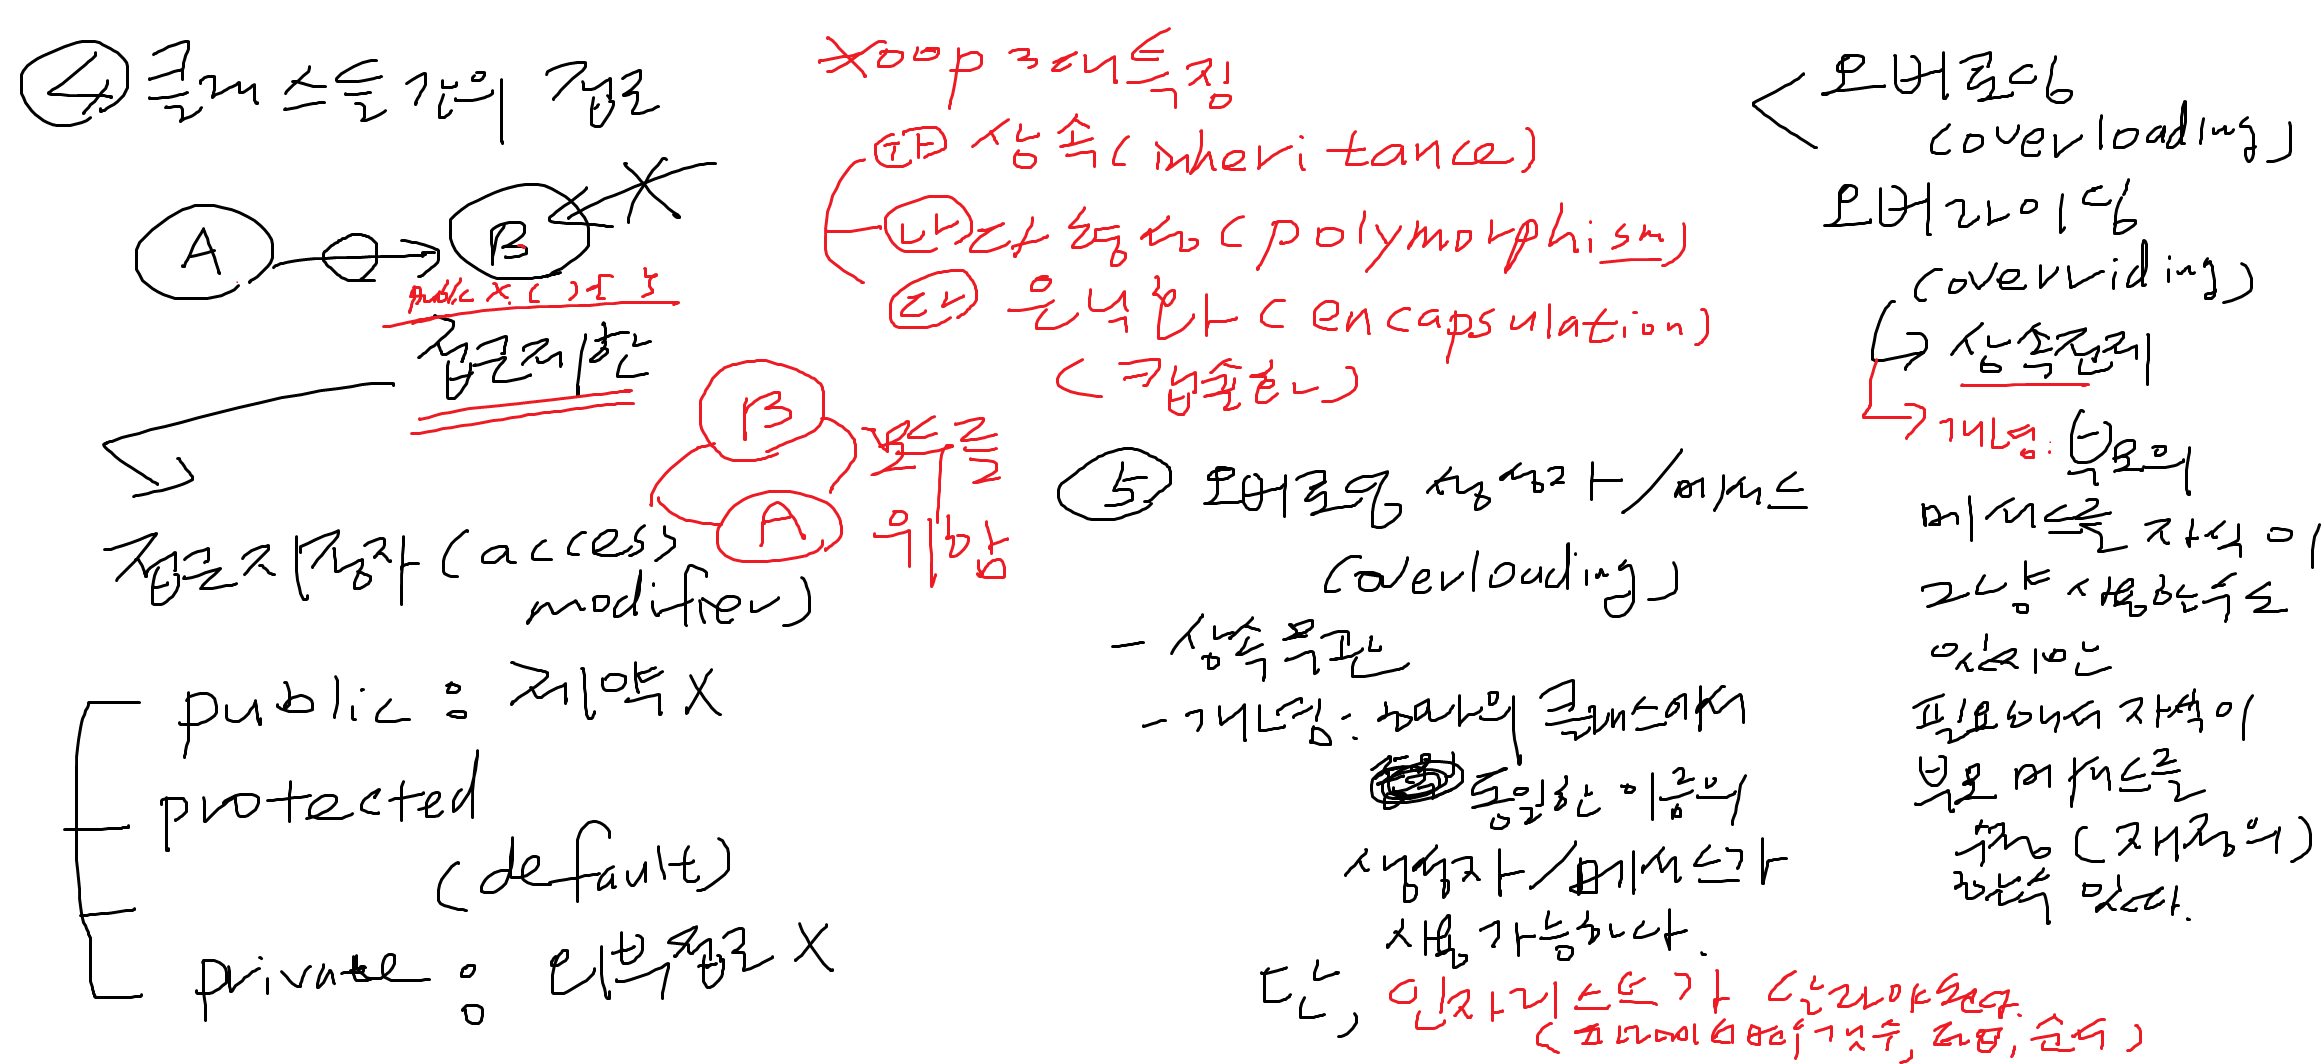 ④ 클래스들간의 접근
A
B
X
public x ( ) { }
접근제한
접근지정자 (access
modifier)
public : 제약 X
protected
(default)
private : 외부접근 X
B
A
모두를
위함
* oop 3대 특징
가 상속 (inheritance)
나 다형성 (polymorphism)
다 은닉화 (encapsulation)
(캡슐화)
⑤ 오버로딩 생성자/메서드
(overloading)
- 상속 무관
- 개념: 하나의 클래스에서
동일한 이름의
생성자/메서드가
사용가능하다.
단, 인자리스트가 달라야 된다.
오버로딩
(overloading)
오버라이딩
(overriding)
상속전제
개념: 부모의
메서드를 자식이
그냥 사용할수도
있지만
필요해서 자식이
부모 메서드를
수정 (재정의)
할수 있다.